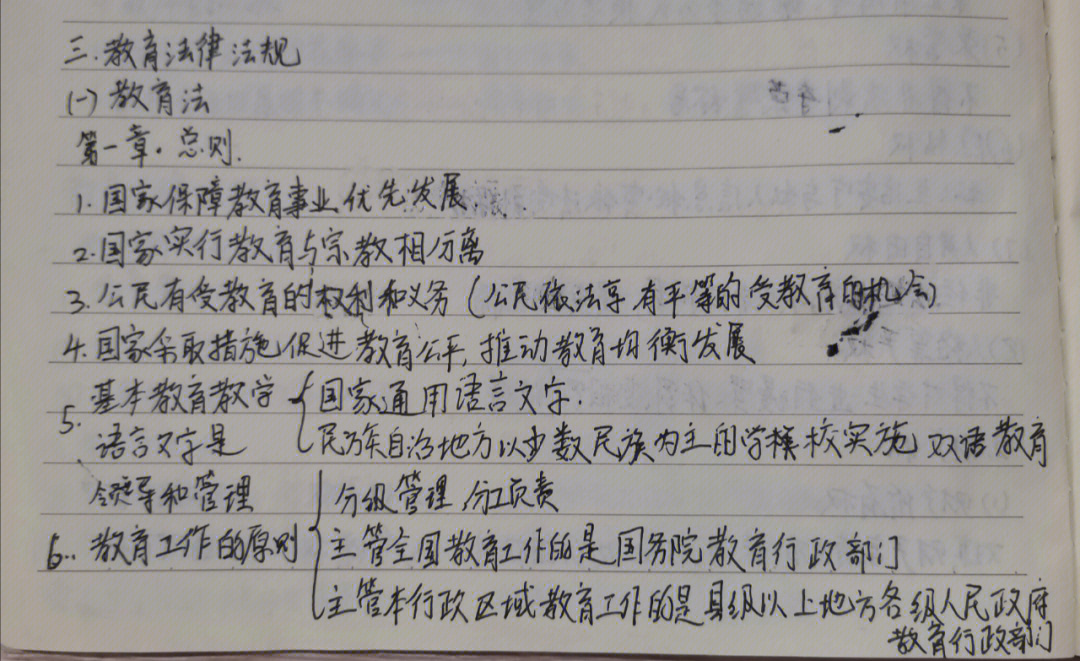 三.教育法律法规
(一)教育法
第一章.总则.
1.国家保障教育事业优先发展.
2.国家实行教育与宗教相分离
3.公民有受教育的权利和义务(公民依法享有平等的受教育的机会)
4.国家采取措施促进教育公平,推动教育均衡发展
5.基本教育教学语言文字是
国家通用语言文字.
民族自治地方以少数民族为主的学校实施双语教育
6..领导和管理教育工作的原则
分级管理,分工负责
主管全国教育工作的是国务院教育行政部门
主管本行政区域教育工作的是县级以上地方各级人民政府
教育行政部门